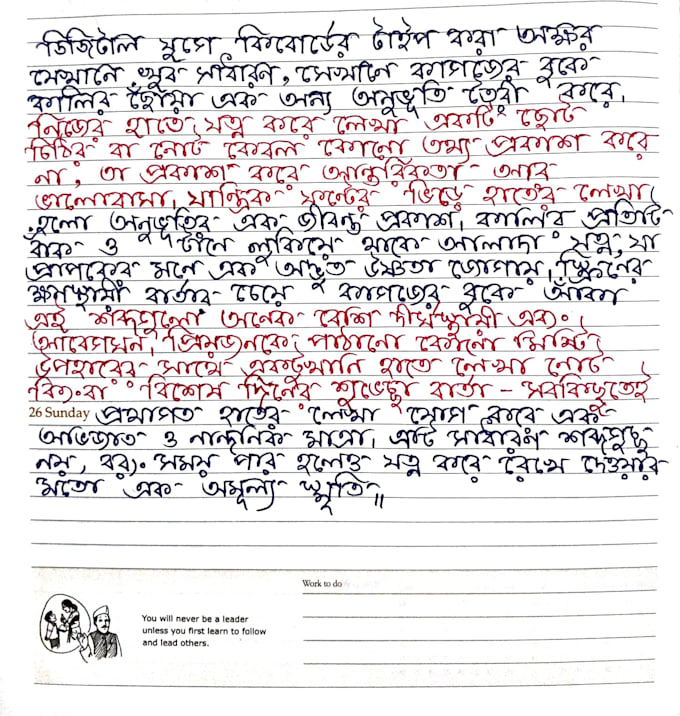 ডিজিটাল যুগে কিবোর্ডের টাইপ করা অক্ষর
যেখানে খুব সাধারন, সেখানে কাগজের বুকে
কালির ছোঁয়া এক অন্য অনুভূতি তৈরী করে,
নিজের হাতে যত্ন করে লেখা একটি ছোট
চিঠির বা নোট কেবল কোনো তথ্য প্রকাশ করে
না, তা প্রকাশ করে আন্তরিকতা আর
ভালোবাসা, যান্ত্রিক ফন্টের ভিড়ে হাতের লেখা
হলো অনুভূতির এক জীবন্ত প্রকাশ, কালির প্রতিটি
বাঁক ও টানে লুকিয়ে থাকে আলাদা যত্ন, যা
প্রাপকের মনে এক অদ্ভুত উষ্ণতা জোগায়, স্ক্রিনের
ক্ষণস্থায়ী বার্তার চেয়ে কাগজের বুকে আঁকা
এই শব্দগুলো অনেক বেশি দীর্ঘস্থায়ী এবং
আবেগঘন, প্রিয়জনকে পাঠানো কোনো মিষ্টি
উপহারের সাথে একটুখানি হাতে লেখা নোট
কিংবা বিশেষ দিনের শুভেচ্ছা বার্তা – সবকিছুতেই
26 Sunday প্রথাগত হাতের লেখা যোগ করে এক
অভিজাত ও নান্দনিক মাত্রা, এটি সাধারণ শব্দগুচ্ছ
নয়, বরং সময় পার হলেও যত্ন করে রেখে দেওয়ার
মতো এক অমূল্য স্মৃতি॥
Work to do
You will never be a leader
unless you first learn to follow
and lead others.